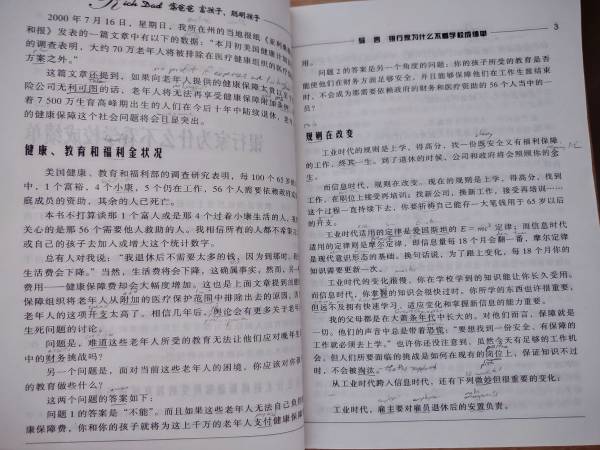 Rich Dad 富爸爸 富孩子，聪明孩子
2000 年 7 月 16 日，星期日，我所在的当地报纸《亚利桑
和报》发表的一篇文章中有以下的数据："本月初美国健康计划
的调查表明，大约 70 万老年人将被排除在医疗健康组织的医疗
方案之外。"
这篇文章还提到，如果向老年人提供的健康保障太贵
险公司无利可图的话，老年人将无法再享受健康保障
着 7 500 万生育高峰期出生的人们在今后十年中陆续退休，
的健康保障这个社会问题将会日显突出。
健康、教育和福利金状况
美国健康、教育和福利部的调查研究表明，每 100 个 65 岁
中，1 个富裕，4 个小康，5 个仍在工作，56 个人需要依赖政府
庭成员的资助，其余的人已死亡。
本书不打算谈那 1 个富人或是那 4 个过着小康生活的人，我
关心的是那 56 个需要他人救助的人。我相信所有的人都不希望
或自己的孩子去加入或增大这个统计数字。
总有人对我说："我退休后不需要太多的钱，因为到那时，
生活费会下降。"当然，生活费将会下降，这确属事实，然而，另一
费用——健康保障费却会大幅度增加。这也是上面文章提到的健
保障组织将老年人从附加的医疗保护范围中排除出去的原因，
老年人的这项开支太高了。相信几年后，舆论会有更多关于老年
生死问题的讨论。
问题是，难道这些老年人所受的教育无法让他们应对晚年生
中的财务挑战吗？
另一个问题是，面对当前这些老年人的困境，你应该对你孩
的教育做些什么？
这两个问题的答案如下：
问题 1 的答案是"不能"。而且如果这些老年人无法自己负担
康保障费，你和你的孩子就将为这上千万的老年人支付健康保障
导 言 银行家为什么不看学校成绩单
3
用。
问题 2 的答案是另一个角度的问题：你的孩子所受的教育是否
能使他们在财务方面足够安全，并且能够保障他们在工作生涯结束
时，不会成为那需要依赖政府的财务和医疗资助的 56 个人当中的一
员？
规则在改变
工业时代的规则是上学，得高分，找一份既安全又有福利保障
的工作，终其一生。到了退休的时候，公司和政府将会照顾你的
人。
而信息时代，规则在改变。现在的规则是上学，得高分，找到
工作，在职位上接受再培训；找新公司，换新工作，接受再培训……
这个过程一直持续下去，你要祈祷自己能存一大笔钱用于 65 岁以后
的开支。
工业时代适用的定律是爱因斯坦的 E = mc² 定律；而信息时代
适用的定律则是摩尔定律，即信息量每 18 个月会翻一番，摩尔定律
是现代意识形态的基础。换句话说，为了跟上变化，每 18 个月你的
知识需要更新一次。
工业时代的变化雅慢，你在学校学到的知识能让你长久受用。
而信息时代，你掌握的知识会很快过时，你所学的东西也许很重要，
但远不及拥有快速学习、适应变化和掌握新信息的能力重要。
我的父母都是在大萧条年代中长大的。对他们而言，保障就是
一切，他们的声音中总是带着恐慌："要想找到一份安全、有保障的
工作就必须去上学。"也许你还没注意到，虽然今天有足够的工作机
会，但人们所要面临的挑战是如何在现有的岗位上，保证知识不过
时，不会被淘汰。
从工业时代跨入信息时代，还有下列微妙但很重要的变化：
工业时代，雇主要对雇员退休后的安置负责。